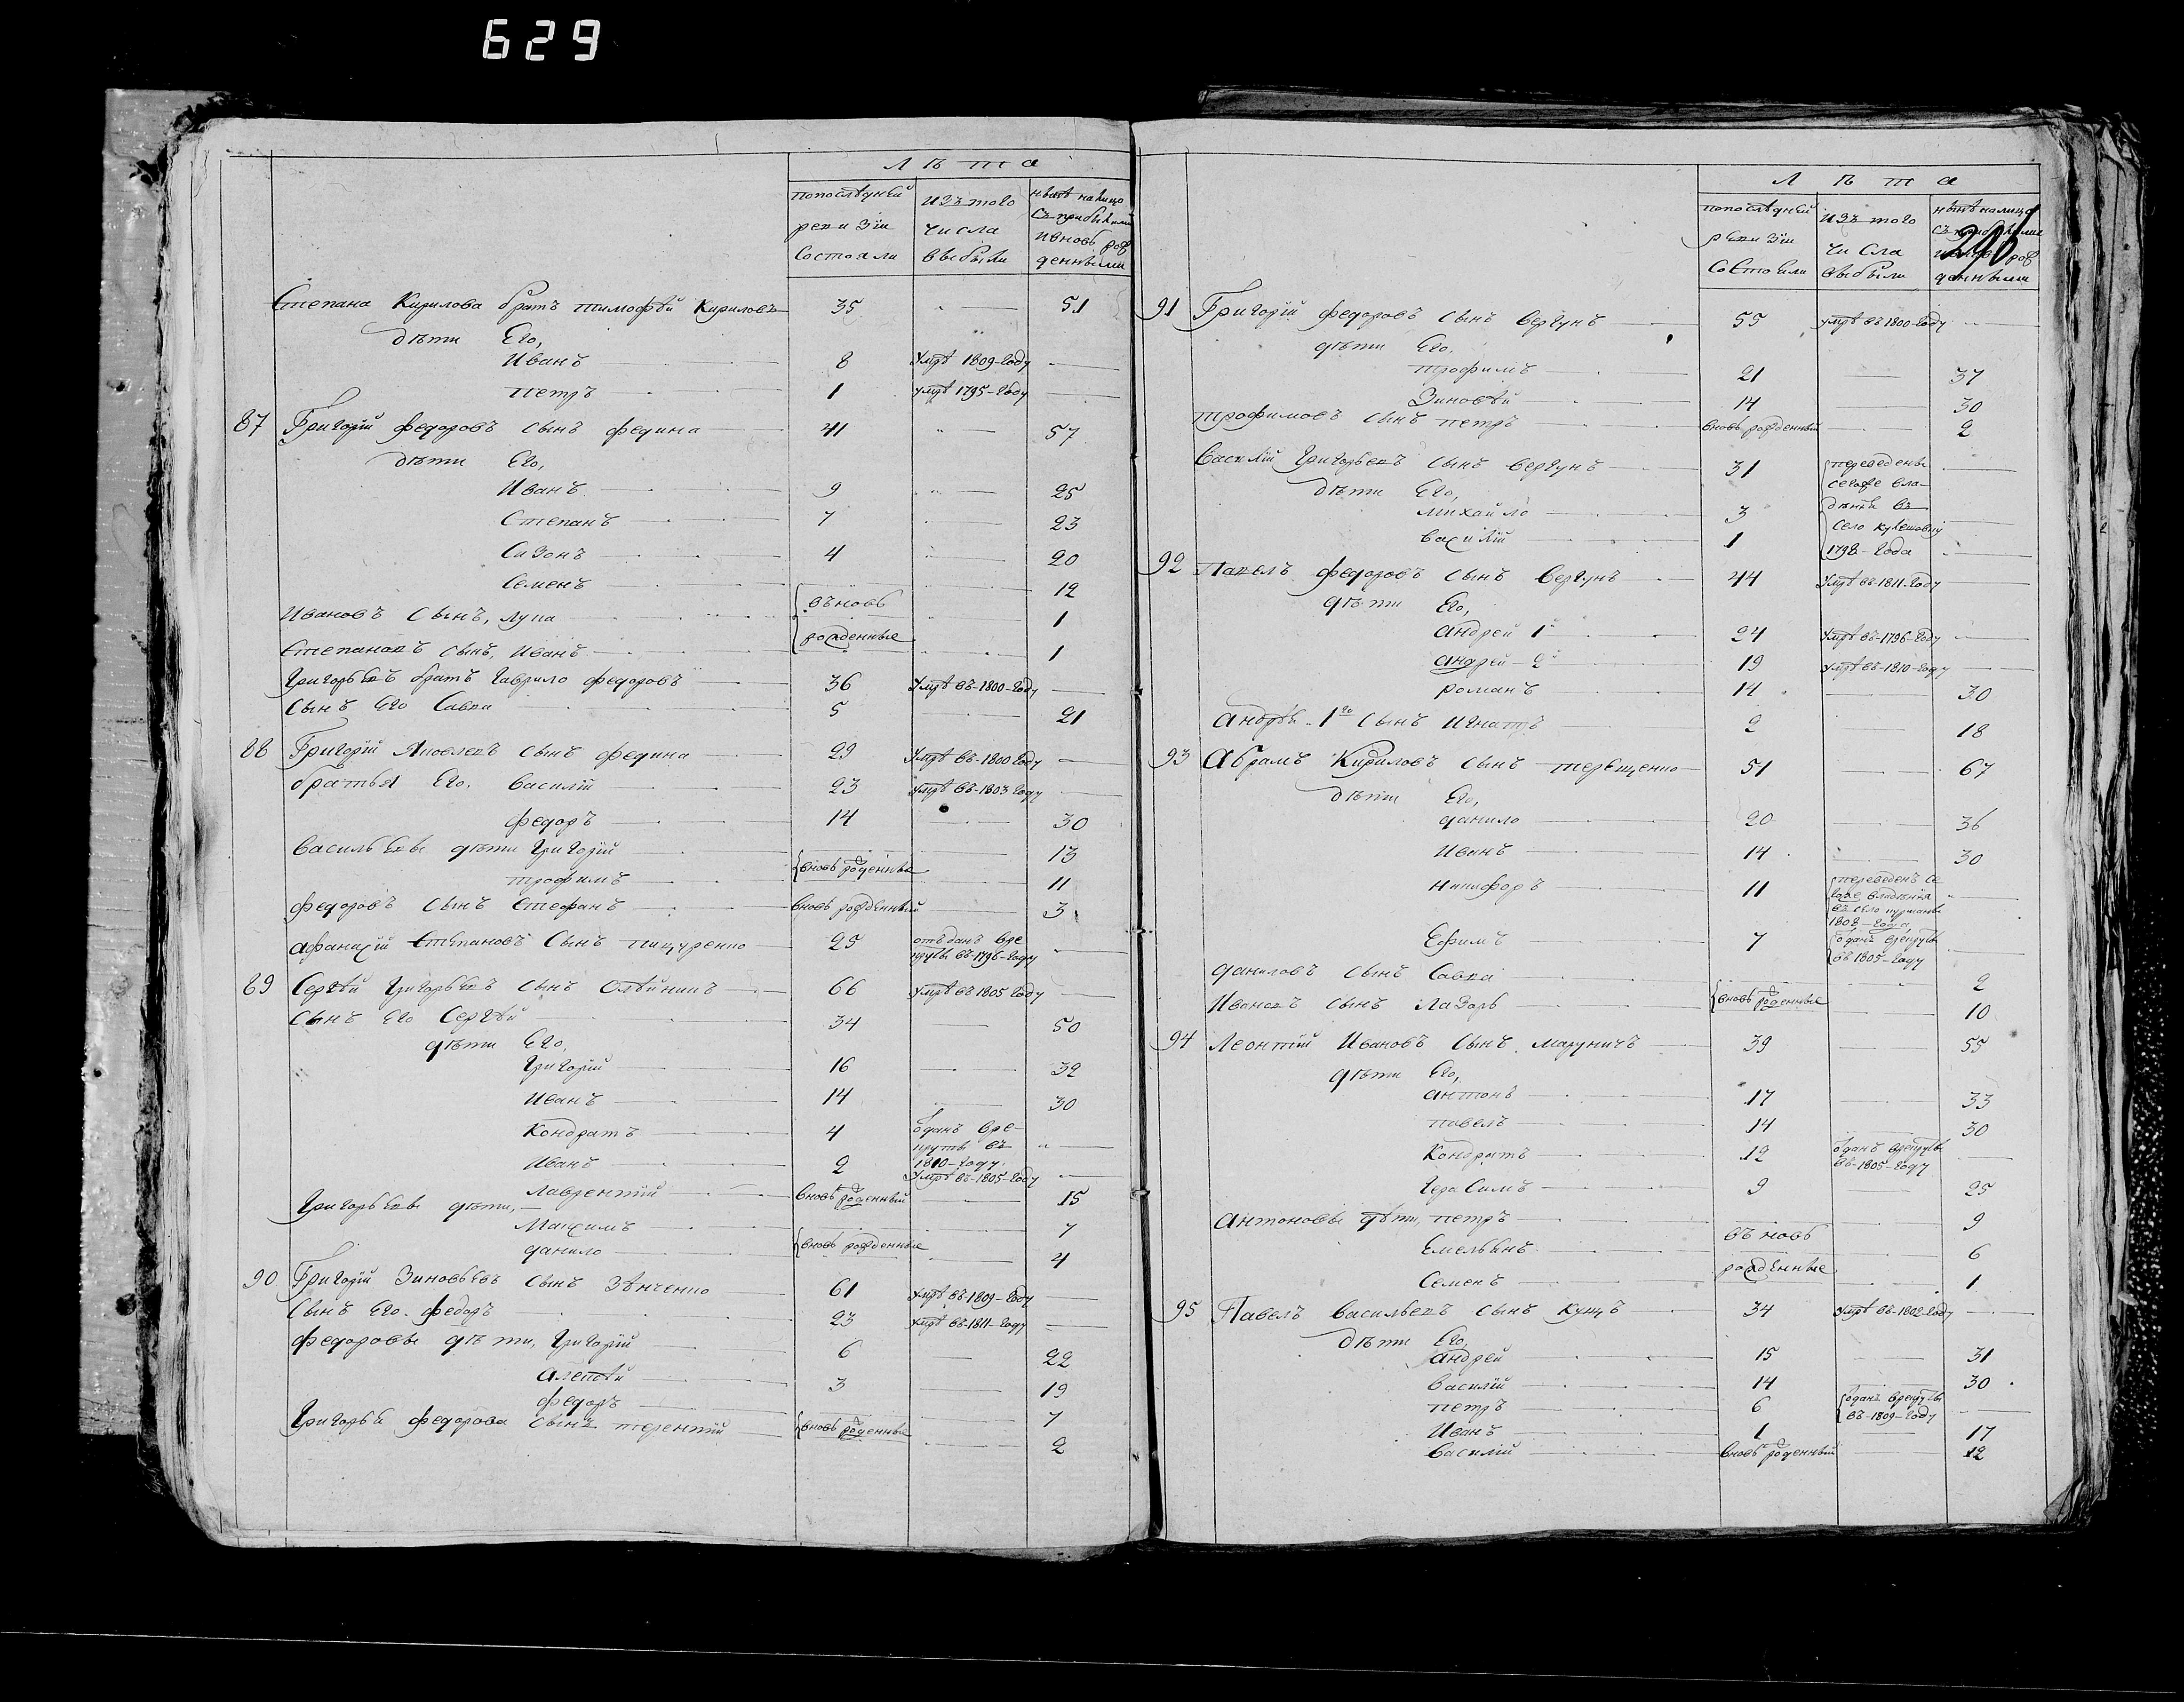 629
Лѣта
попослѣдней ревизіи состояли
изъ того числа выбыли
нынѣ налицо съ прибылими и вновь рожденными
Степана Кирилова братъ тимофѣй Кириловъ 35 51
дѣти Его,
Иванъ 8 Умре 1809-году
петръ 1 умре 1795-году
87 Григорій федоровъ сынъ федина 41 57
дѣти Его,
Иванъ 9 25
Степанъ 7 23
Сизонъ 4 20
Семенъ въновь 12
Ивановъ Сынъ, лупа 1
Степановъ сынъ, Иванъ рожденные 1
Григорьевъ братъ гаврило федоровъ 36 Умре въ-1800-году
Сынъ Его Савка 5 21
88 Григорій Яковлевъ сынъ федина 29 Умре въ-1800 году
братья Его. Василій 23 умре въ-1803 году
федоръ 14 30
Васильевы дѣти григорій 13
трофимъ вновь рожденные 11
федоровъ сынъ Стефанъ вновь рожденный 3
афанасій Степановъ Сынъ пащуренко 25 отъданъ вре
круты въ-1796-году
89 Сергѣй григорьевъ сынъ Олѣйникъ 66 умре въ 1805 году
Сынъ Его Сергѣй 34 50
дѣти Его,
григорій 16 32
Иванъ 14 30
Кондратъ 4 оданъ вре-
круты въ
1810-году.
Иванъ 2 Умре въ-1805-году
Лаврентій вновь рожденный 15
григорьевы дѣти,
Максимъ 7
данило вновь рожденные 4
90 Григорій Зиновьевъ сынъ Зѣнченко 61 умре въ-1809-году
Сынъ Его. федоръ 23 умре въ-1811-году
федоровы дѣти, григорій 6 22
алексѣй 3 19
федоръ 7
григорья федорова сынъ терентій вновь рожденные 2
Лѣта
попослѣдней ревизіи состояли
изъ того числа выбыли
нынѣ налицо съ прибылими и вновь рожденными
91 Григорій федоровъ сынъ вергунъ 55 умре въ 1800-году
дѣти Его.
трофимъ 21 37
Зиновѣй 14 30
трофимовъ сынъ петръ вновь рожденный 2
Василій григорьевъ сынъ вергунъ 31 переведены
сегоже вла-
дѣти Его,
михайло 3 дѣнія въ
село
василій 1 1798-года
92 Павелъ федоровъ сынъ вергунъ 44 Умре въ-1811-году
дѣти Его,
андрей 1й 24 Умре въ-1796-году
андрей-2й 19 умре въ-1810-году
романъ 14 30
андрѣя. 1го сынъ игнатъ 2 18
93 Абрамъ Кириловъ сынъ терещенко 51 67
дѣти Его,
данило 20 36
Иванъ 14 30
никифоръ 11 переведенъ се
гоже владѣнія
въ село
1808-года
Ефимъ 7 оданъ врекруты
въ 1805-году
даниловъ сынъ Савка 2
Ивановъ сынъ Лазарь вновь рожденные 10
94 Леонтій Ивановъ сынъ. маруничъ 39 55
дѣти Его,
антонъ 17 33
павелъ 14 30
Кондратъ 12 оданъ врекруты
въ-1805-году
гера Симъ 9 25
антоновы дѣти, петръ 9
Емельянъ въ новь 6
Семенъ рожденные 1
95 Павелъ васильевъ сынъ куцъ 34 умре въ-1802-году
дѣти Его,
андрей 15 31
василій 14 30
петръ 6 оданъ врекруты
въ-1809-году
Иванъ 1 17
василій вновь рожденный 12